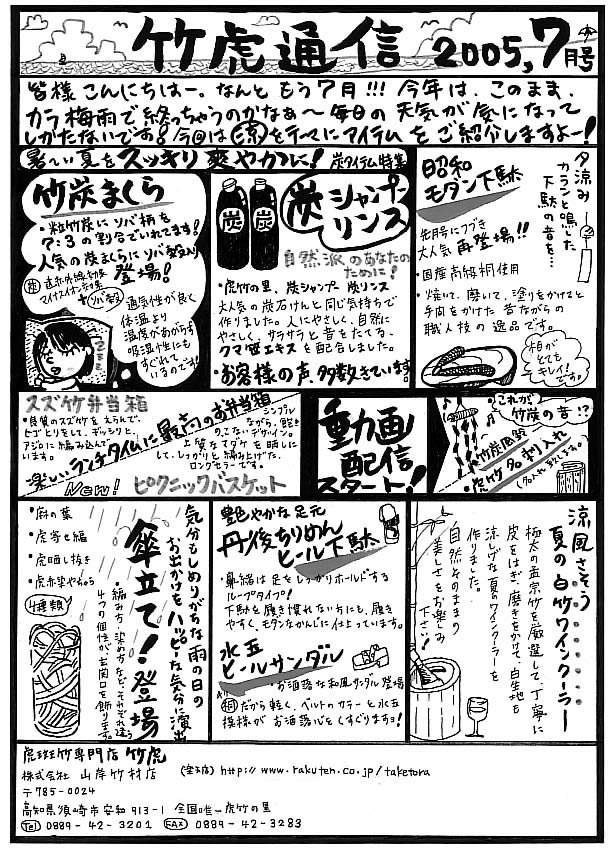 竹虎通信 2005,7月号
皆様こんにちはー。なんともう7月!!! 今年は、このまま、
カラ梅雨で終っちゃうのかなぁ〜毎日の天気が気になって
しかたないです!今回は涼をテーマにアイテムをご紹介しますよー!
暑〜い夏をスッキリ爽やかに! 炭アイテム特集
竹炭まくら
・粒竹炭にソバ柄を
7:3の割合でいれてます!
人気の炭まくらにソバ殻入り
登場!
炭 遠赤外線効果
マイナスイオン効果
+ソバ殻
通気性が良く
体温より
温度があがらず
吸湿性にも
すぐれて
いるのです!
炭
炭
炭シャンプー
リンス
自然派のあなたの
ために!
・虎竹の里、炭シャンプー 炭リンス
大人気の炭石けんと同じ気持ちで
作りました。人にやさしく、自然に
やさしく、サラサラと音をたてる、
クマ笹エキスを配合しました。
・お客様の声、多数きています。
昭和
モダン下駄
先月号につづき
大人気再登場!!
・国産高級桐使用
・焼いて、磨いて、塗りをかけてと
手間をかけた昔ながらの
職人技の逸品です。
夕涼み
カランと鳴いた
下駄の音を…
桐が
とても
キレイ!
です。
スズ竹弁当箱
・良質のスズ竹をえらんで、
ヒゴとりをして、ギッシリと、
アジロに編み込んで
います。
楽しいランチタイムに最高のお弁当箱
シンプル
ながら、飽き
のこないデザイン。
上質なマダケを晒しに
して、しっかりと編み上げた、
ロングセラーです。
New! ピクニックバスケット
動画
配信
スタート!
これが
竹炭の音!?
・竹炭風鈴
・虎竹名刺入れ
(名入れもします。)
・麻の葉
・虎寄せ編
・虎晒し抜き
・虎赤染やちゃら
4種類
気分もしめりがちな雨の日の
お出かけをハッピーな気分に演出
傘立て!登場
・編み方、染め方など、それぞれ違う
4つの個性が玄関口を飾ります。
艶やかな足元
丹後ちりめん
ヒール下駄
・鼻緒は足をしっかりホールドする
ループタイプ!
下駄を履き慣れない方にも、履き
やすく、モダンなかんじに仕上っています。
水玉
ヒールサンダル
お洒落な和風サンダル登場
桐だから軽く、ベルトのカラーと水玉
模様がお洒落心をくすぐりますョ!
涼風さそう……
夏の白竹ワインクーラー
極太の孟宗竹を厳選して、丁寧に
皮をはぎ、磨きをかけて、白生地も
涼しげな夏のワインクーラーを
作りました。
自然そのままの
美しさをお楽しみ
下さい!
虎斑竹専門店 竹虎
株式会社 山岸竹材店 (楽天店) http://www.rakuten.co.jp/taketora
〒785-0024
高知県須崎市安和913-1 全国唯一虎竹の里
Tel 0889-42-3201 FAX 0889-42-3283